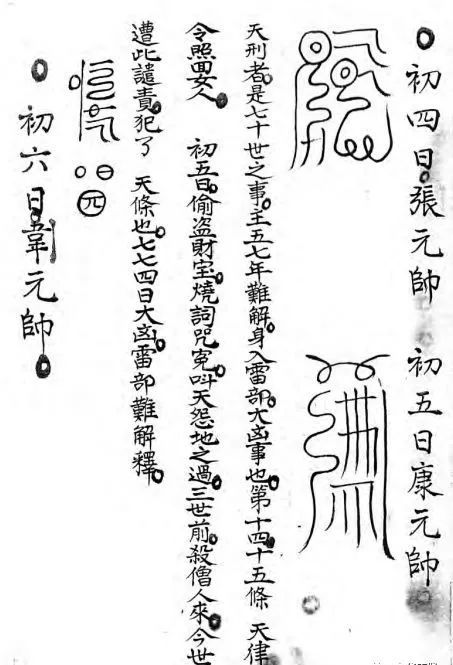 初四日張元帥　初五日康元帥
天刑者是七十世之事主五七年難解身入雷部大凶事也第十四十五條　天律
令照面女人　初五日偷盜財宝燒詞咒寃呌天怨地之過三世前殺僧人來今世
遭此譴責犯了　天條也七七四日大凶雷部難解釋
初六日韋元帥